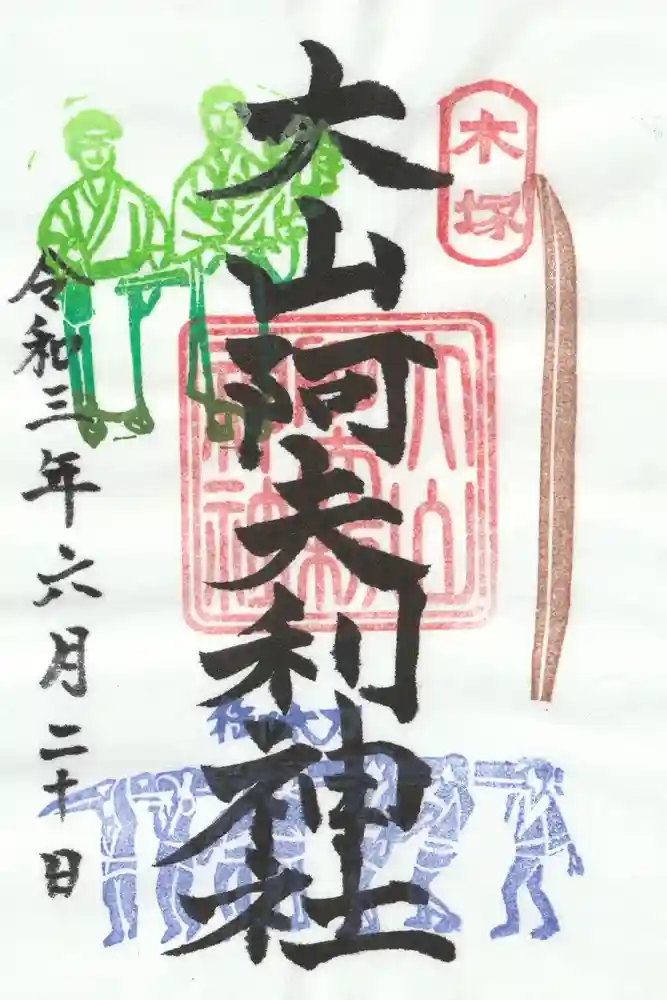 木塚
大山阿夫利神社
大山阿夫利神社
令和三年六月二十日